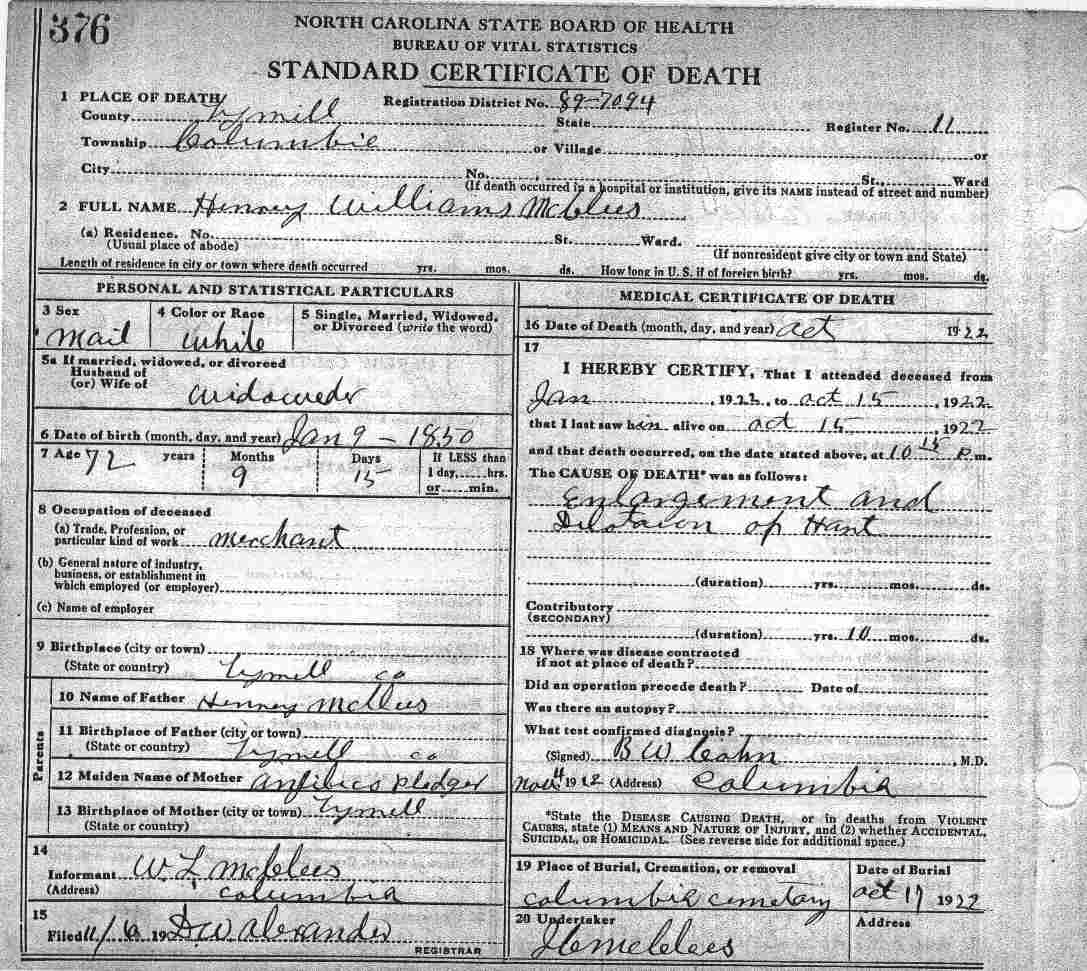 376
NORTH CAROLINA STATE BOARD OF HEALTH
BUREAU OF VITAL STATISTICS
STANDARD CERTIFICATE OF DEATH
1 PLACE OF DEATH Registration District No. 89-7094
County Tyrrell State Register No. 11
Township Columbia or Village or
City No. St., Ward
(If death occurred in a hospital or institution, give its NAME instead of street and number)
2 FULL NAME Henney Williams McClees
(a) Residence. No. St. Ward.
(Usual place of abode) (If nonresident give city or town and State)
Length of residence in city or town where death occurred yrs. mos. ds. How long in U. S. if of foreign birth? yrs. mos. ds.
PERSONAL AND STATISTICAL PARTICULARS
3 Sex 4 Color or Race 5 Single, Married, Widowed, or Divorced (write the word)
mail white
5a If married, widowed, or divorced
Husband of
(or) Wife of
widoweder
6 Date of birth (month, day, and year) Jan 9 - 1850
7 Age 72 years Months 9 Days 15 If LESS than 1 day, hrs. or min.
8 Occupation of deceased
(a) Trade, Profession, or
particular kind of work merchant
(b) General nature of industry,
business, or establishment in
which employed (or employer)
(c) Name of employer
9 Birthplace (city or town)
(State or country) Tyrrell co
Parents
10 Name of Father Henney McClees
11 Birthplace of Father (city or town)
(State or country) Tyrrell co
12 Maiden Name of Mother Pledger
13 Birthplace of Mother (city or town) Tyrrell
(State or country)
14
Informant W. L McClees
(Address) columbia
15
Filed 11/6 19 D W Alexander
REGISTRAR
MEDICAL CERTIFICATE OF DEATH
16 Date of Death (month, day, and year) oct 1922
17
I HEREBY CERTIFY, That I attended deceased from
Jan, 1922, to oct 15, 1922
that I last saw him alive on oct 15, 1922
and that death occurred, on the date stated above, at 10 15 P.m.
The CAUSE OF DEATH* was as follows:
Enlargement and
of Hart
(duration) yrs. mos. ds.
Contributory
(SECONDARY)
(duration) yrs. 10 mos. ds.
18 Where was disease contracted
if not at place of death?
Did an operation precede death? Date of
Was there an autopsy?
What test confirmed diagnosis?
(Signed) B W Cohn, M.D.
Nov 4 1922 (Address) Columbia
*State the DISEASE CAUSING DEATH, or in deaths from VIOLENT
CAUSES, state (1) MEANS AND NATURE OF INJURY, and (2) whether ACCIDENTAL,
SUICIDAL, OR HOMICIDAL. (See reverse side for additional space.)
19 Place of Burial, Cremation, or removal Date of Burial
columbia cemetary oct 17 1922
20 Undertaker Address
McClees